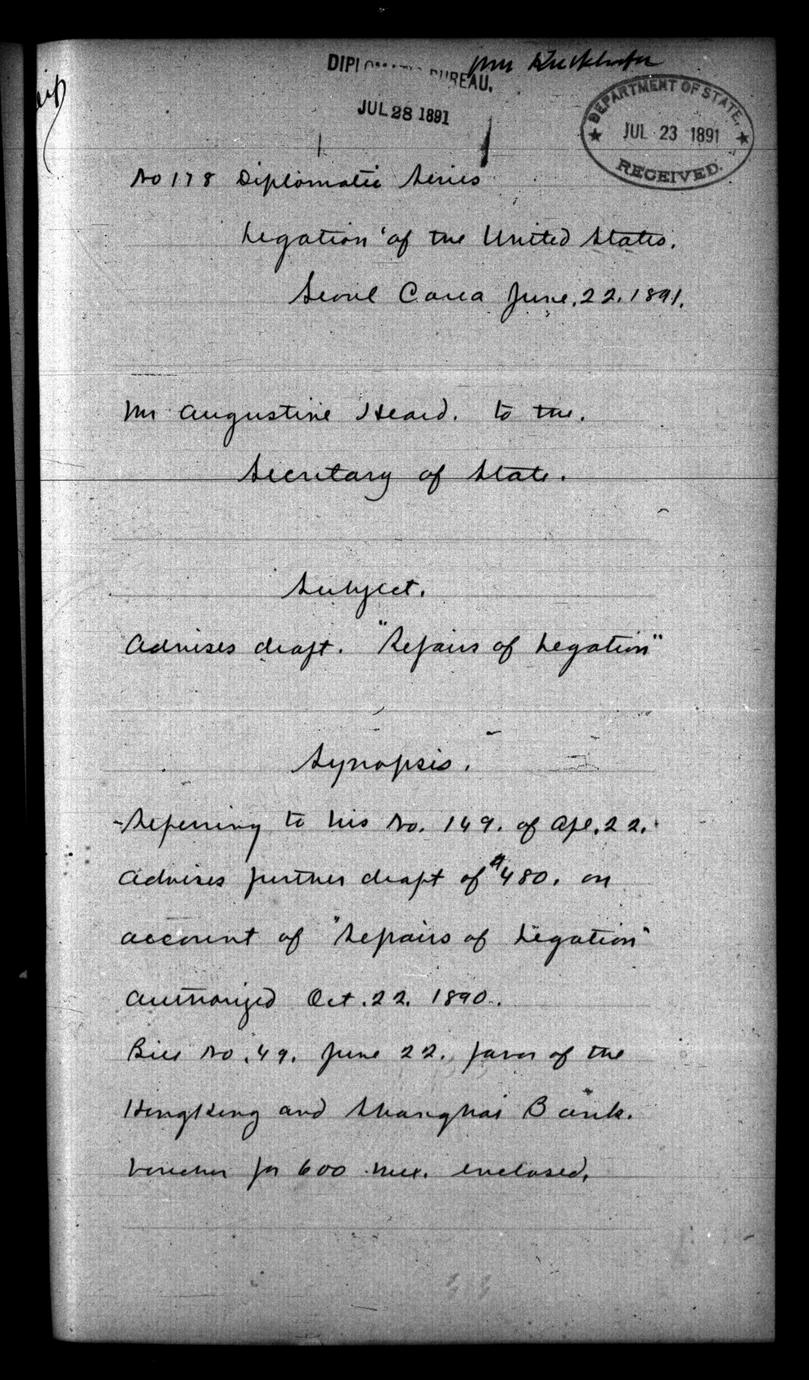 DIPLOMATIC BUREAU.
JUL 28 1891
DEPARTMENT OF STATE,
JUL 23 1891
RECEIVED.
No 178 Diplomatic Series
Legation of the United States.
Seoul Corea June, 22. 1891.
Mr Augustine Heard. to the.
Secretary of State.
Subject.
Advises draft. "Repairs of Legation"
Synopsis.
-Referring to his No. 149. of Apl. 22.
Advises further draft of $480. on
account of "Repairs of Legation"
authorized Oct. 22. 1890.
Bill No. 49. June 22. favor of the
HongKong and Shanghai Bank.
Voucher for 600 Mex. enclosed.